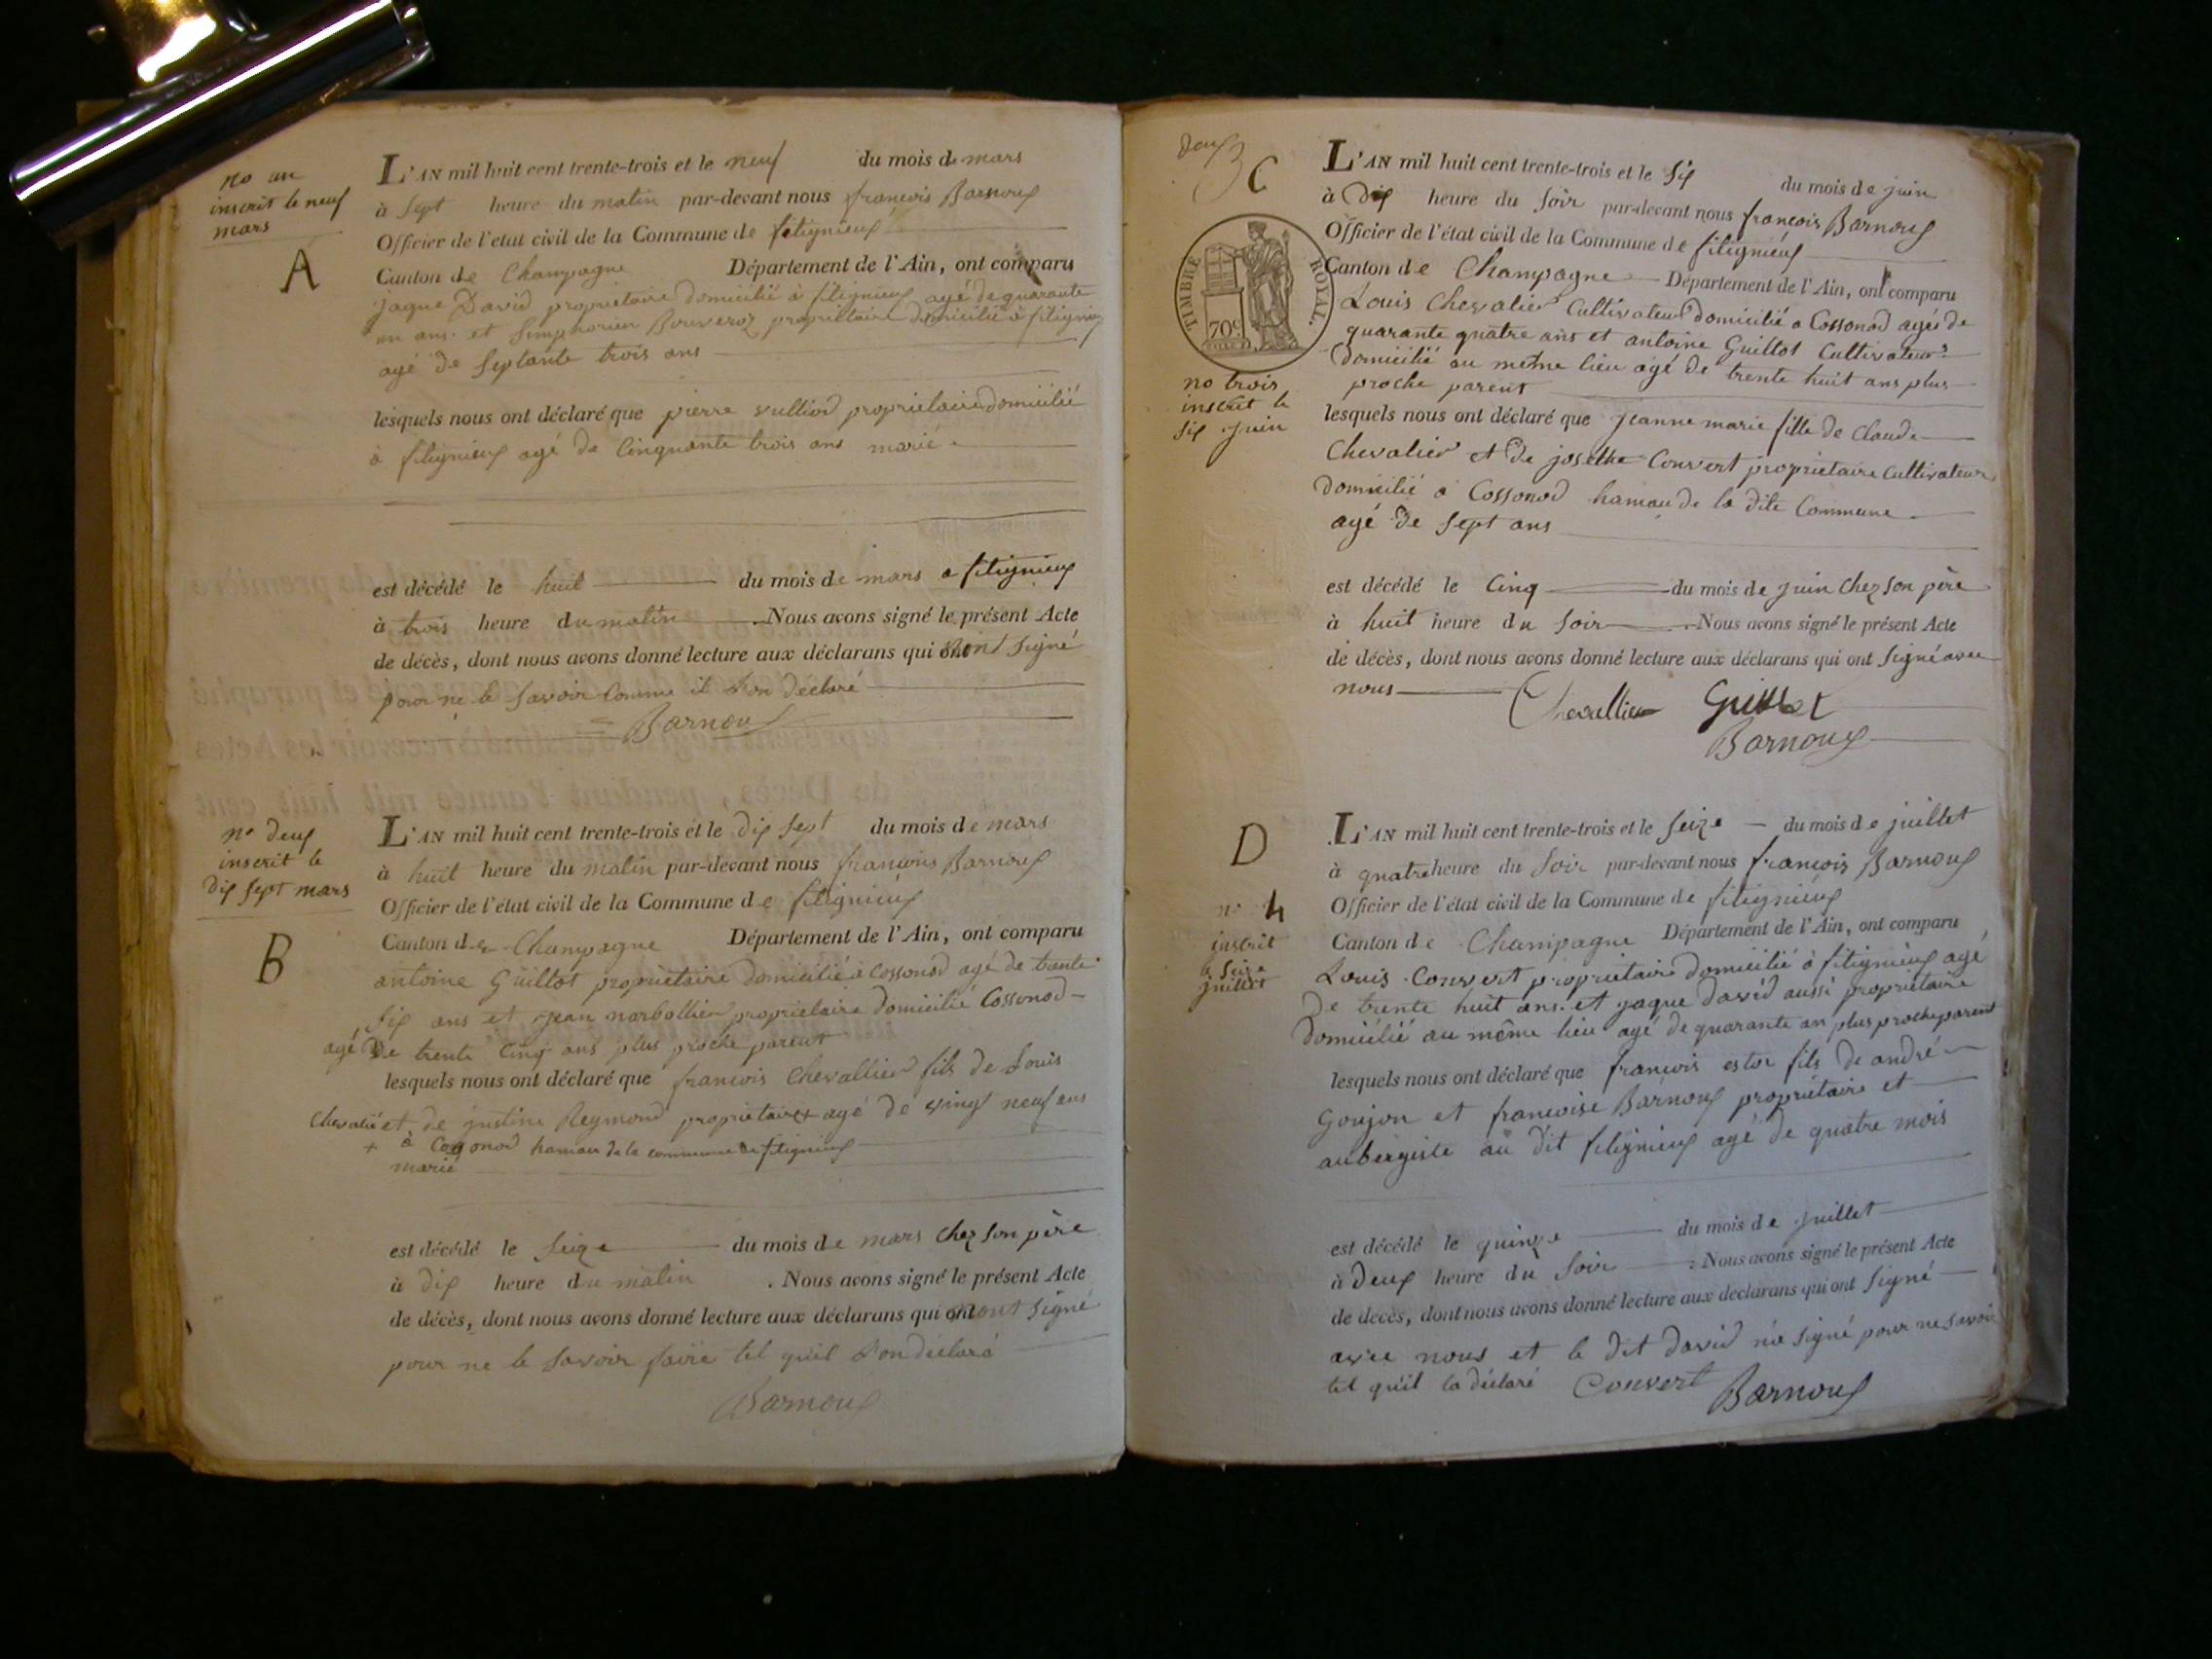 no un
inscrit le neuf
mars
A
L'AN mil huit cent trente-trois et le neuf du mois de mars
à sept heure du matin par-devant nous francois Barnoux
Officier de l'état civil de la Commune de fitignieux
Canton de Champagne Département de l'Ain, ont comparu
jaque David propriétaire domicilié à fitignieux agé de quarante
un ans et Simphorien Bouveroz propriétaire domicilié à fitignieux
agé de septante trois ans
lesquels nous ont déclaré que pierre vulliod propriétaire domicilié
à fitignieux agé de Cinquante trois ans marié
est décédé le huit du mois de mars a fitignieux
à trois heure du matin . Nous avons signé le présent Acte
de décès, dont nous avons donné lecture aux déclarans qui n'ont signé
pour ne le savoir Comme il l'on déclaré
Barnoux
no deux
inscrit le
dix sept mars
B
L'AN mil huit cent trente-trois et le dix sept du mois de mars
à huit heure du matin par-devant nous francois Barnoux
Officier de l'état civil de la Commune de fitignieux
Canton de Champagne Département de l'Ain, ont comparu
antoine Guillot propriétaire domicilié à Cossonod agé de trente
six ans et jean narbollier propriétaire domicilié Cossonod
agé de trente cinq ans plus proche parent
lesquels nous ont déclaré que francois Chevallier fils de Louis
Chevalié et de justine Reymond propriétaire + agé de vingt neuf ans
+ à Cossonod hamau de la commune de fitignieux
marié
est décédé le seize du mois de mars chez son père
à dix heure du matin . Nous avons signé le présent Acte
de décès, dont nous avons donné lecture aux déclarans qui n'ont signé
pour ne le savoir faire tel qu'il l'on déclaré
Barnoux
deux
C
TIMBRE ROYAL.
70c
no trois
inscrit le
six juin
L'AN mil huit cent trente-trois et le six du mois de juin
à dix heure du soir par-devant nous francois Barnoux
Officier de l'état civil de la Commune de fitignieux
Canton de Champagne Département de l'Ain, ont comparu
Louis Chevalier Cultivateur domicilié a Cossonod agés de
quarante quatre ans et antoine Guillot Cultivateurs
domicilié au même lieu agé de trente huit ans plus
proche parent
lesquels nous ont déclaré que jeanne marie fille de Claude
Chevalier et de josethe Convert propriétaire cultivateur
domicilié à Cossonod hamau de la dite Commune
agé de sept ans
est décédé le Cinq du mois de juin chez son père
à huit heure du soir . Nous avons signé le présent Acte
de décès, dont nous avons donné lecture aux déclarans qui ont signé avec
nous Chevallier Guillot
Barnoux
D
n° 4
inscrit
le seize
juillet
L'AN mil huit cent trente-trois et le seize du mois de juillet
à quatre heure du soir par-devant nous francois Barnoux
Officier de l'état civil de la Commune de fitignieux
Canton de Champagne Département de l'Ain, ont comparu
Louis Convert propriétaire domicilié à fitignieux agé
de trente huit ans et jaque david aussi propriétaire
domicilié au même lieu agé de quarante an plus proche parent
lesquels nous ont déclaré que francois fils de andré
Goujon et francoise Barnoux propriétaire et
aubergiste au dit fitignieux agé de quatre mois
est décédé le quinze du mois de juillet
à deux heure du soir . Nous avons signé le présent Acte
de décès, dont nous avons donné lecture aux déclarans qui ont signé
avec nous et le dit david n'a signé pour ne savoir
tel qu'il la déclaré Convert Barnoux